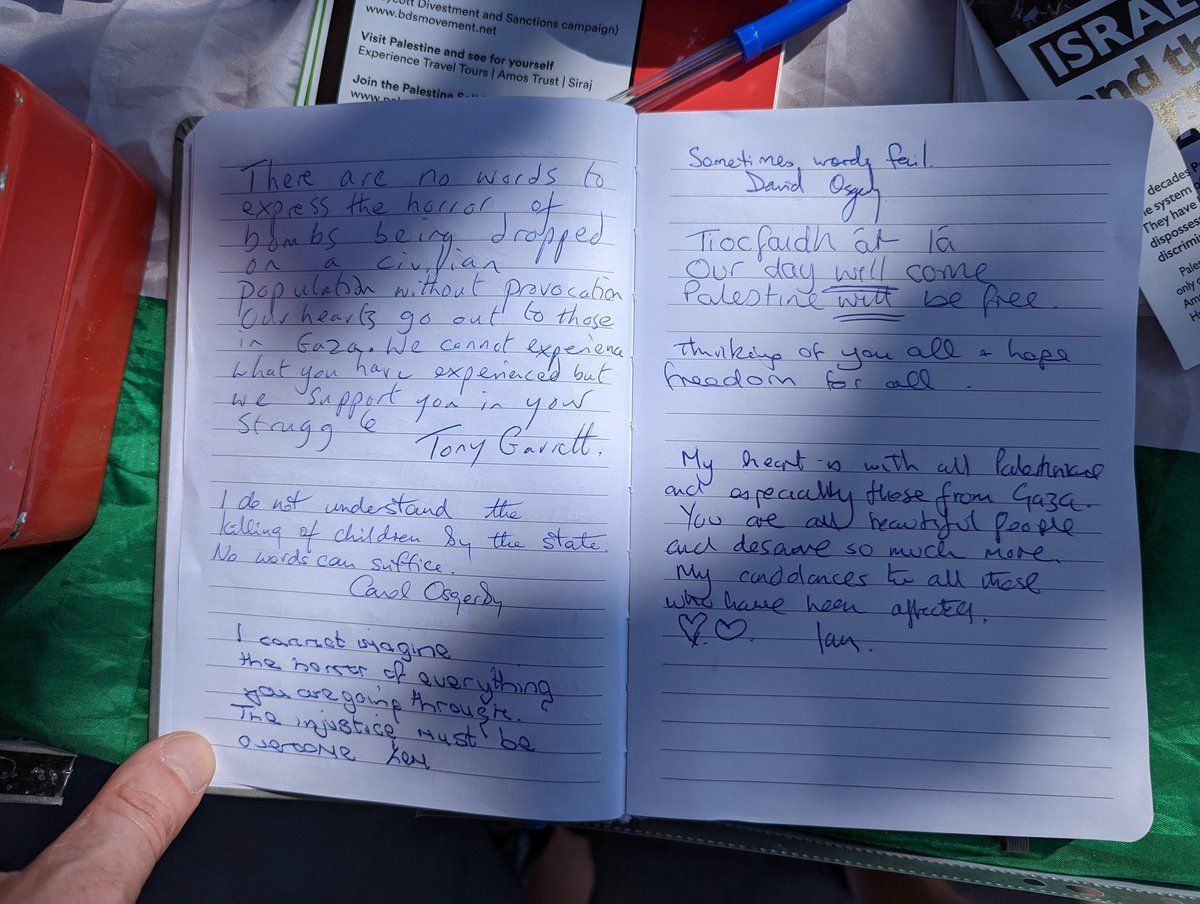 Divestment and Sanctions campaign)
www.bdsmovement.net
Visit Palestine and see for yourself
Experience Travel Tours | Amos Trust | Siraj
Join the Palestine
ISRAE
and th
decades
system
They have
disposses
discrimi
only
There are no words to
express the horror of
bombs being dropped
on a civilian
population without provocation
Our hearts go out to those
in Gaza. We cannot experience
what you have experienced but
we support you in your
struggle
Tony Garrett.
I do not understand the
killing of children by the state.
No words can suffice.
Carol Osgerby
I cannot imagine
the horror of everything
you are going through.
The injustice must be
overcome
Sometimes, words fail.
David
Tiocfaidh ár lá
Our day will come
Palestine will be free.
Thinking of you all + hope
freedom for all.
My heart is with all Palestinians
and especially those from Gaza.
You are all beautiful people
and deserve so much more.
My condolances to all those
who have been affected.
Ian.